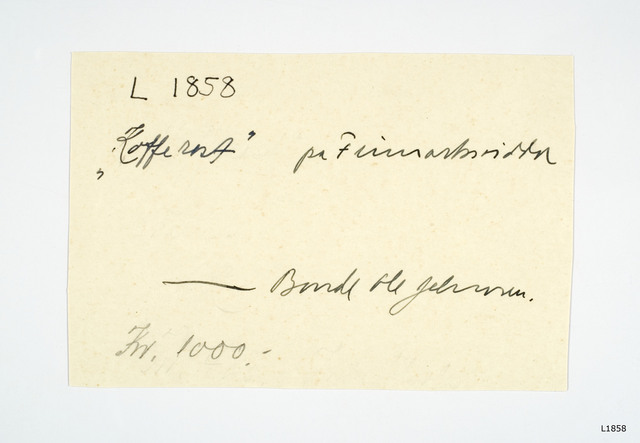 L 1858
„Kafferast" på Finmarksvidda
— Bonde Ole
Kr. 1000.-
L1858